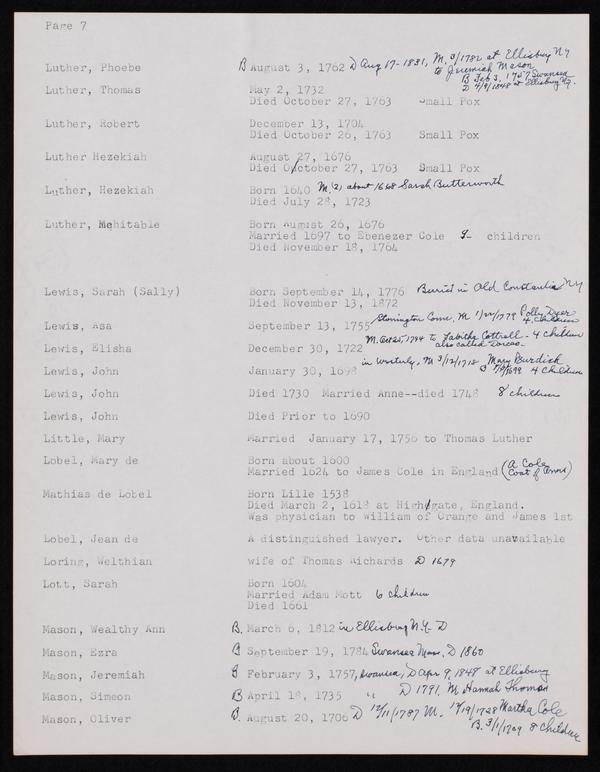 Page 7
Luther, Phoebe B August 3, 1762 D Aug 17-1831, M. 3/1782 at Ellisburg NY
to Jeremiah Mason
B Feb 3, 1757 Swansea
D 4/9/1848 at Ellisburg NY.
Luther, Thomas May 2, 1732
Died October 27, 1763 Small Pox
Luther, Robert December 13, 1704
Died October 26, 1763 Small Pox
Luther Hezekiah August 27, 1676
Died October 27, 1763 Small Pox
Luther, Hezekiah Born 1640 M. (2) about 1668 Sarah Butterworth
Died July 28, 1723
Luther, Mehitable Born August 26, 1676
Married 1697 to Ebenezer Cole 9- children
Died November 18, 1764
Lewis, Sarah (Sally) Born September 14, 1776 Buried in Old Constantia NY
Died November 13, 1872
Lewis, Asa September 13, 1755 Stonington Conn, M. 1/22/1779 Polly Dyer
4 Children
M. Oct 25, 1794 to Tabitha Cottrell - 4 children
also called Dorcas.
Lewis, Elisha December 30, 1722
Lewis, John January 30, 1698 in Westerly, M 3/12/1718 Mary Burdick
4 Children
Lewis, John Died 1730 Married Anne--died 1748 8 children
Lewis, John Died Prior to 1690
Little, Mary Married January 17, 1756 to Thomas Luther
Lobel, Mary de Born about 1600
Married 1624 to James Cole in England (A Cole
Coat of Arms)
Mathias de Lobel Born Lille 1538
Died March 2, 1618 at Highgate, England.
Was physician to William of Orange and James 1st
Lobel, Jean de A distinguished lawyer. Other data unavailable
Loring, Welthian wife of Thomas Richards D 1679
Lott, Sarah Born 1604
Married Adam Mott 6 children
Died 1661
Mason, Wealthy Ann B. March 6, 1812 in Ellisburg N.Y. D
Mason, Ezra B September 19, 1784 Swansea Mass, D 1860
Mason, Jeremiah B February 3, 1757, Swansea, D Apr 9, 1848 at Ellisburg
Mason, Simeon B April 18, 1735 " D 1791, M Hannah Thomas
Mason, Oliver B. August 20, 1706 D 12/11/1787 M. 12/19/1728 Martha Cole
B. 3/1/1709 8 children